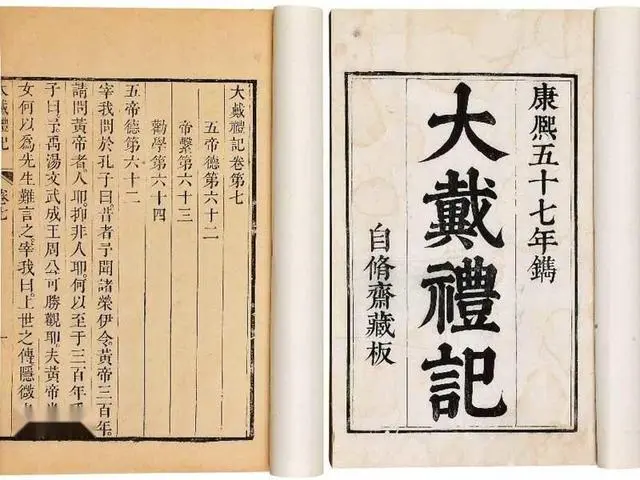 康熙五十七年鐫
大戴禮記
自脩齋藏板
大戴禮記卷第七
五帝德第六十二
帝繫第六十三
勸學第六十四
五帝德第六十二
宰我問於孔子曰。昔者予聞諸榮伊令。黃帝三百年。
請問黃帝者。人耶。抑非人耶。何以至于三百年乎
子曰。予。禹湯文武成王周公可勝觀耶。夫黃帝
女何以爲先生難言之。宰我曰。上世之傳。隱微
大戴禮記 卷七 一